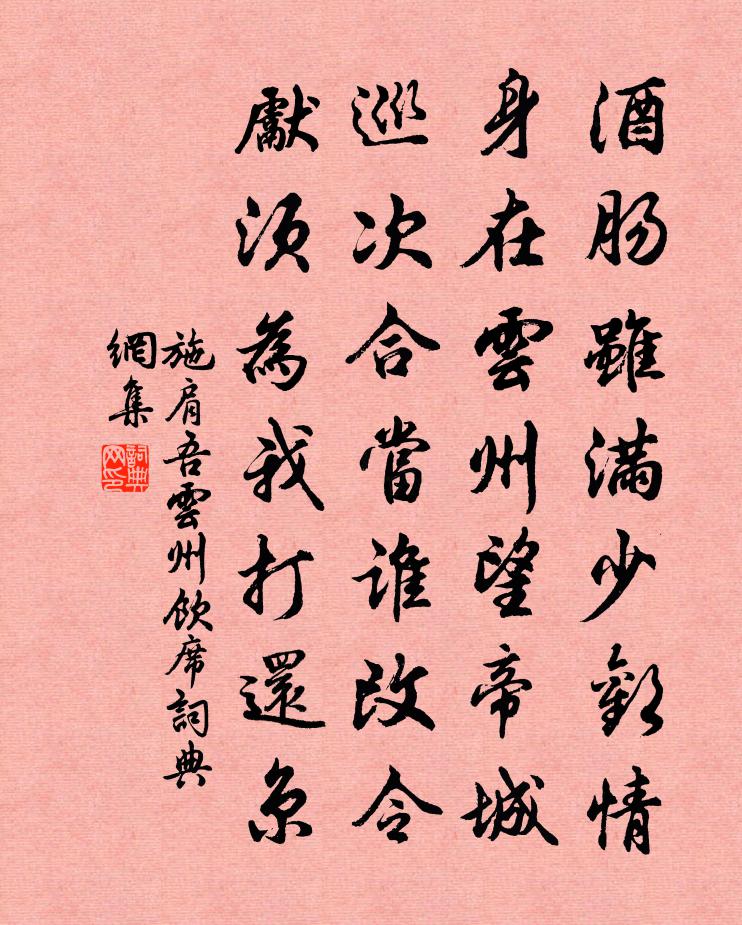 酒肠雖滿少歡情
身在雲州望帝城
巡次合當誰改令
獻須為我打還京
施肩吾雲州飲席詞典
網集
詞典
网印